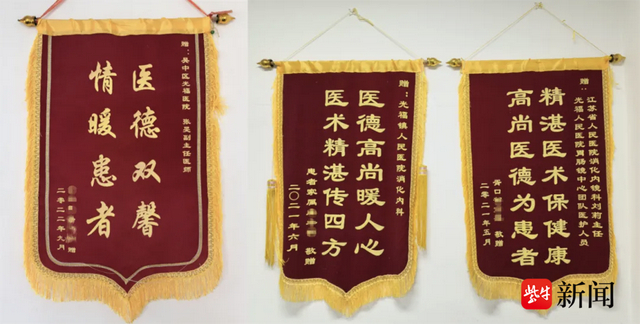 赠：吴中区光福医院 张 副主任医师
医德双馨
情暖患者
赠
二零二二年九月
赠：光福镇人民医院消化内科
医德高尚暖人心
医术精湛传四方
患者家属 敬赠
二〇二一年六月
赠：江苏省人民医院消化内镜科刘 主任
光福人民医院胃肠镜中心团队医护人员
精湛医术保健康
高尚医德为患者
胥口 敬赠
二零二一年五月
紫牛新闻